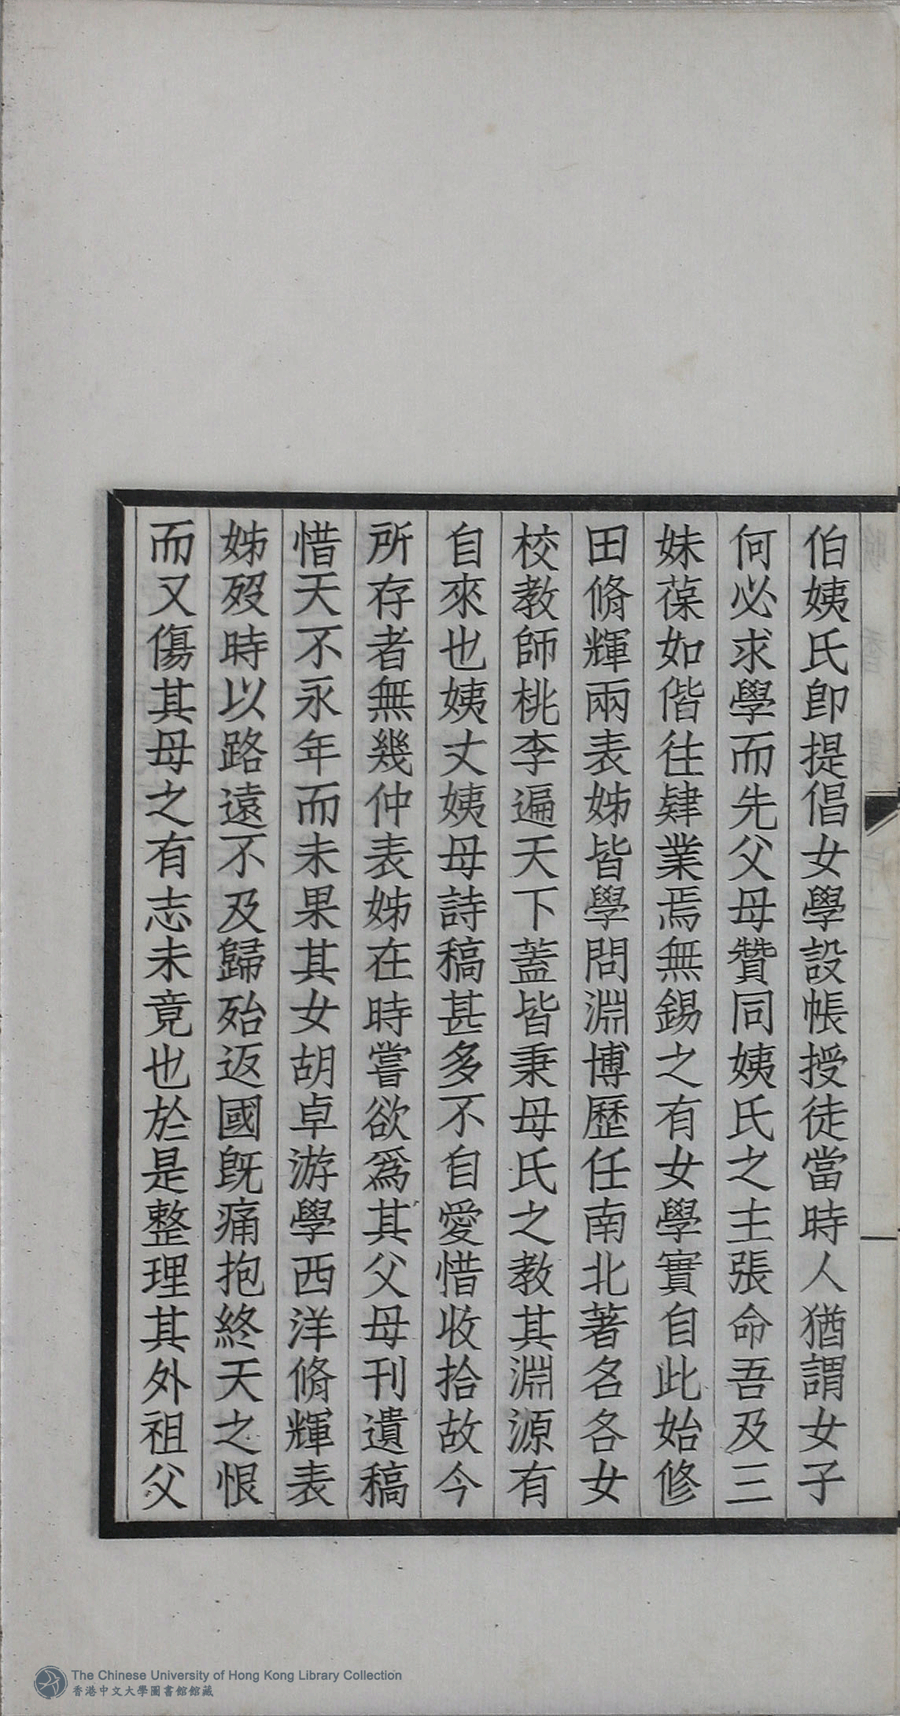 伯姨氏卽提倡女學設帳授徒當時人猶謂女子
何必求學而先父母贊同姨氏之主張命吾及三
妹葆如偕往肄業焉無錫之有女學實自此始修
田脩輝兩表姊皆學問淵博歷任南北著名各女
校教師桃李遍天下蓋皆秉母氏之教其淵源有
自來也姨丈姨母詩稿甚多不自愛惜收拾故今
所存者無幾仲表姊在時嘗欲爲其父母刊遺稿
惜天不永年而未果其女胡卓游學西洋脩輝表
姊歿時以路遠不及歸殆返國旣痛抱終天之恨
而又傷其母之有志未竟也於是整理其外祖父
The Chinese University of Hong Kong Library Collection
香港中文大學圖書館館藏